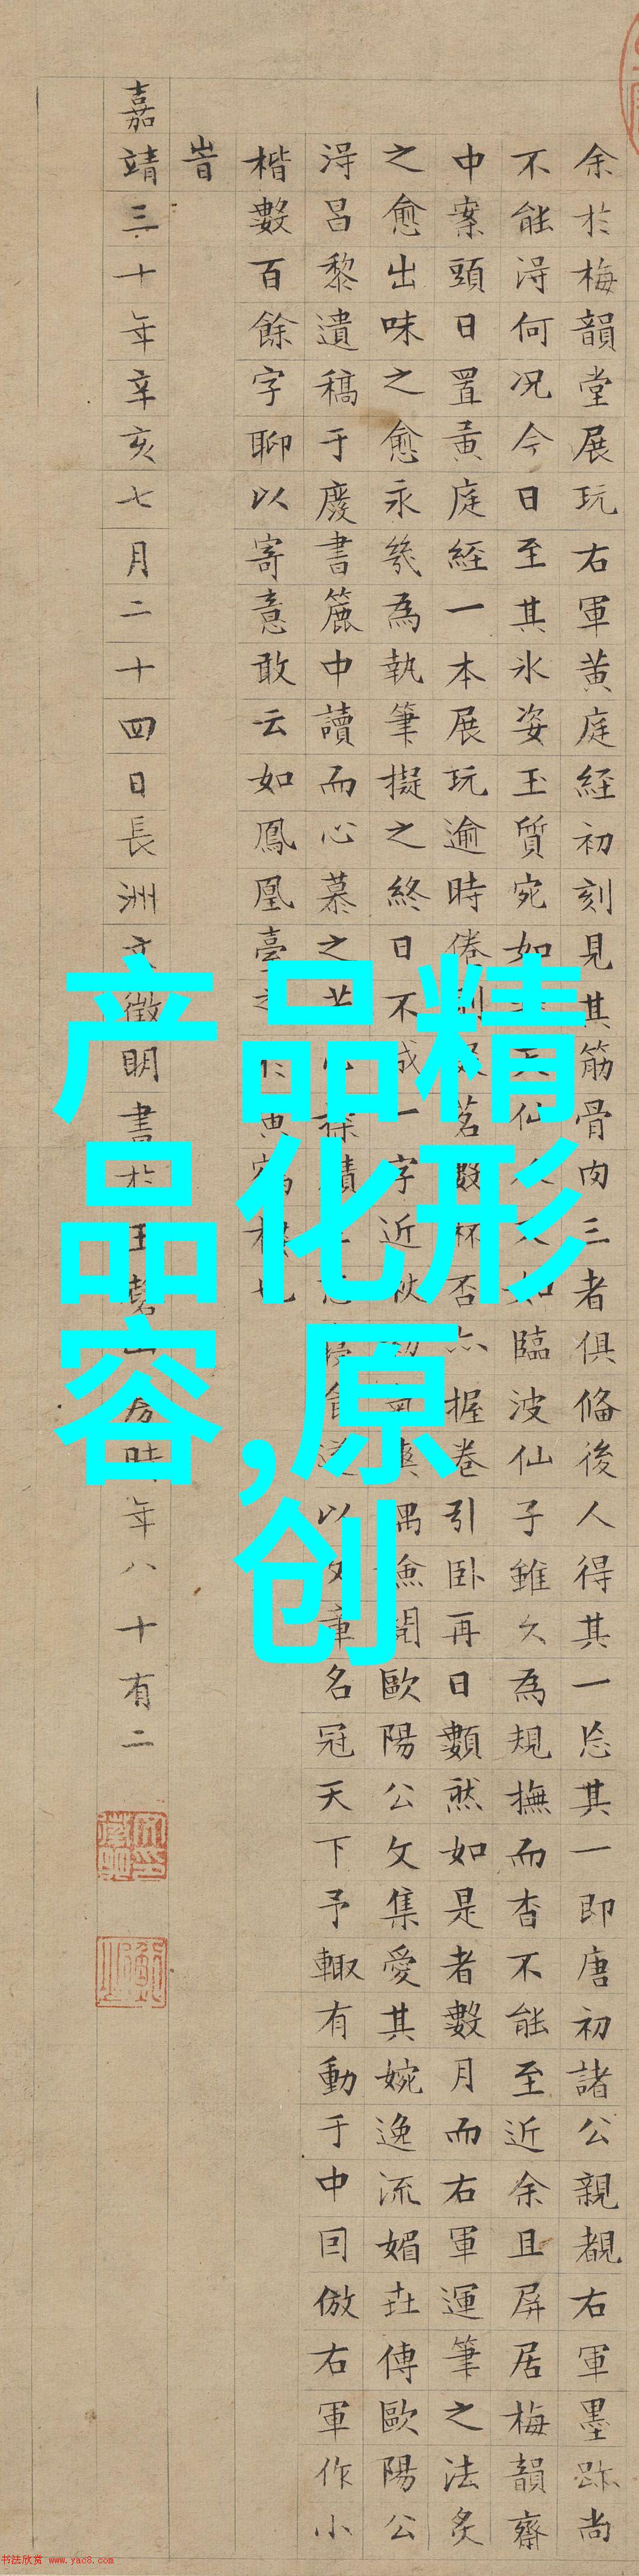 余於梅韻堂展玩右軍黄庭經初刻見其筋骨肉三者俱俻後人得其一忘其一即唐初諸公親覩右軍墨跡尚
不能淂何况今日至其氷姿玉質宛如仙如臨波仙子雖久為規撫而杳不能至近余且屏居梅韻齋
中案頭日置黃庭經一本展玩逾時倦則茗數杯否亦握卷引卧再日數㷼如是者數月而右軍運筆之法炙
之愈出味之愈永幾為執筆擬之終日不成一字近秋偶魚閱歐陽公文集愛其婉逸流媚豔傳歐陽公
淂吕黎遺稿于廢書簏中讀而心慕之苦以文章名冠天下予輙有動于中囙倣右軍作小
楷數百餘字聊以寄意敢云如鳳凰臺之於黄鶴樓也
旹
嘉靖三十年辛亥七月二十四日長洲文徵明書於玉磬山房時年八十有二
产品精
品化形
容,原
创
书法欣赏 www.yac8.com